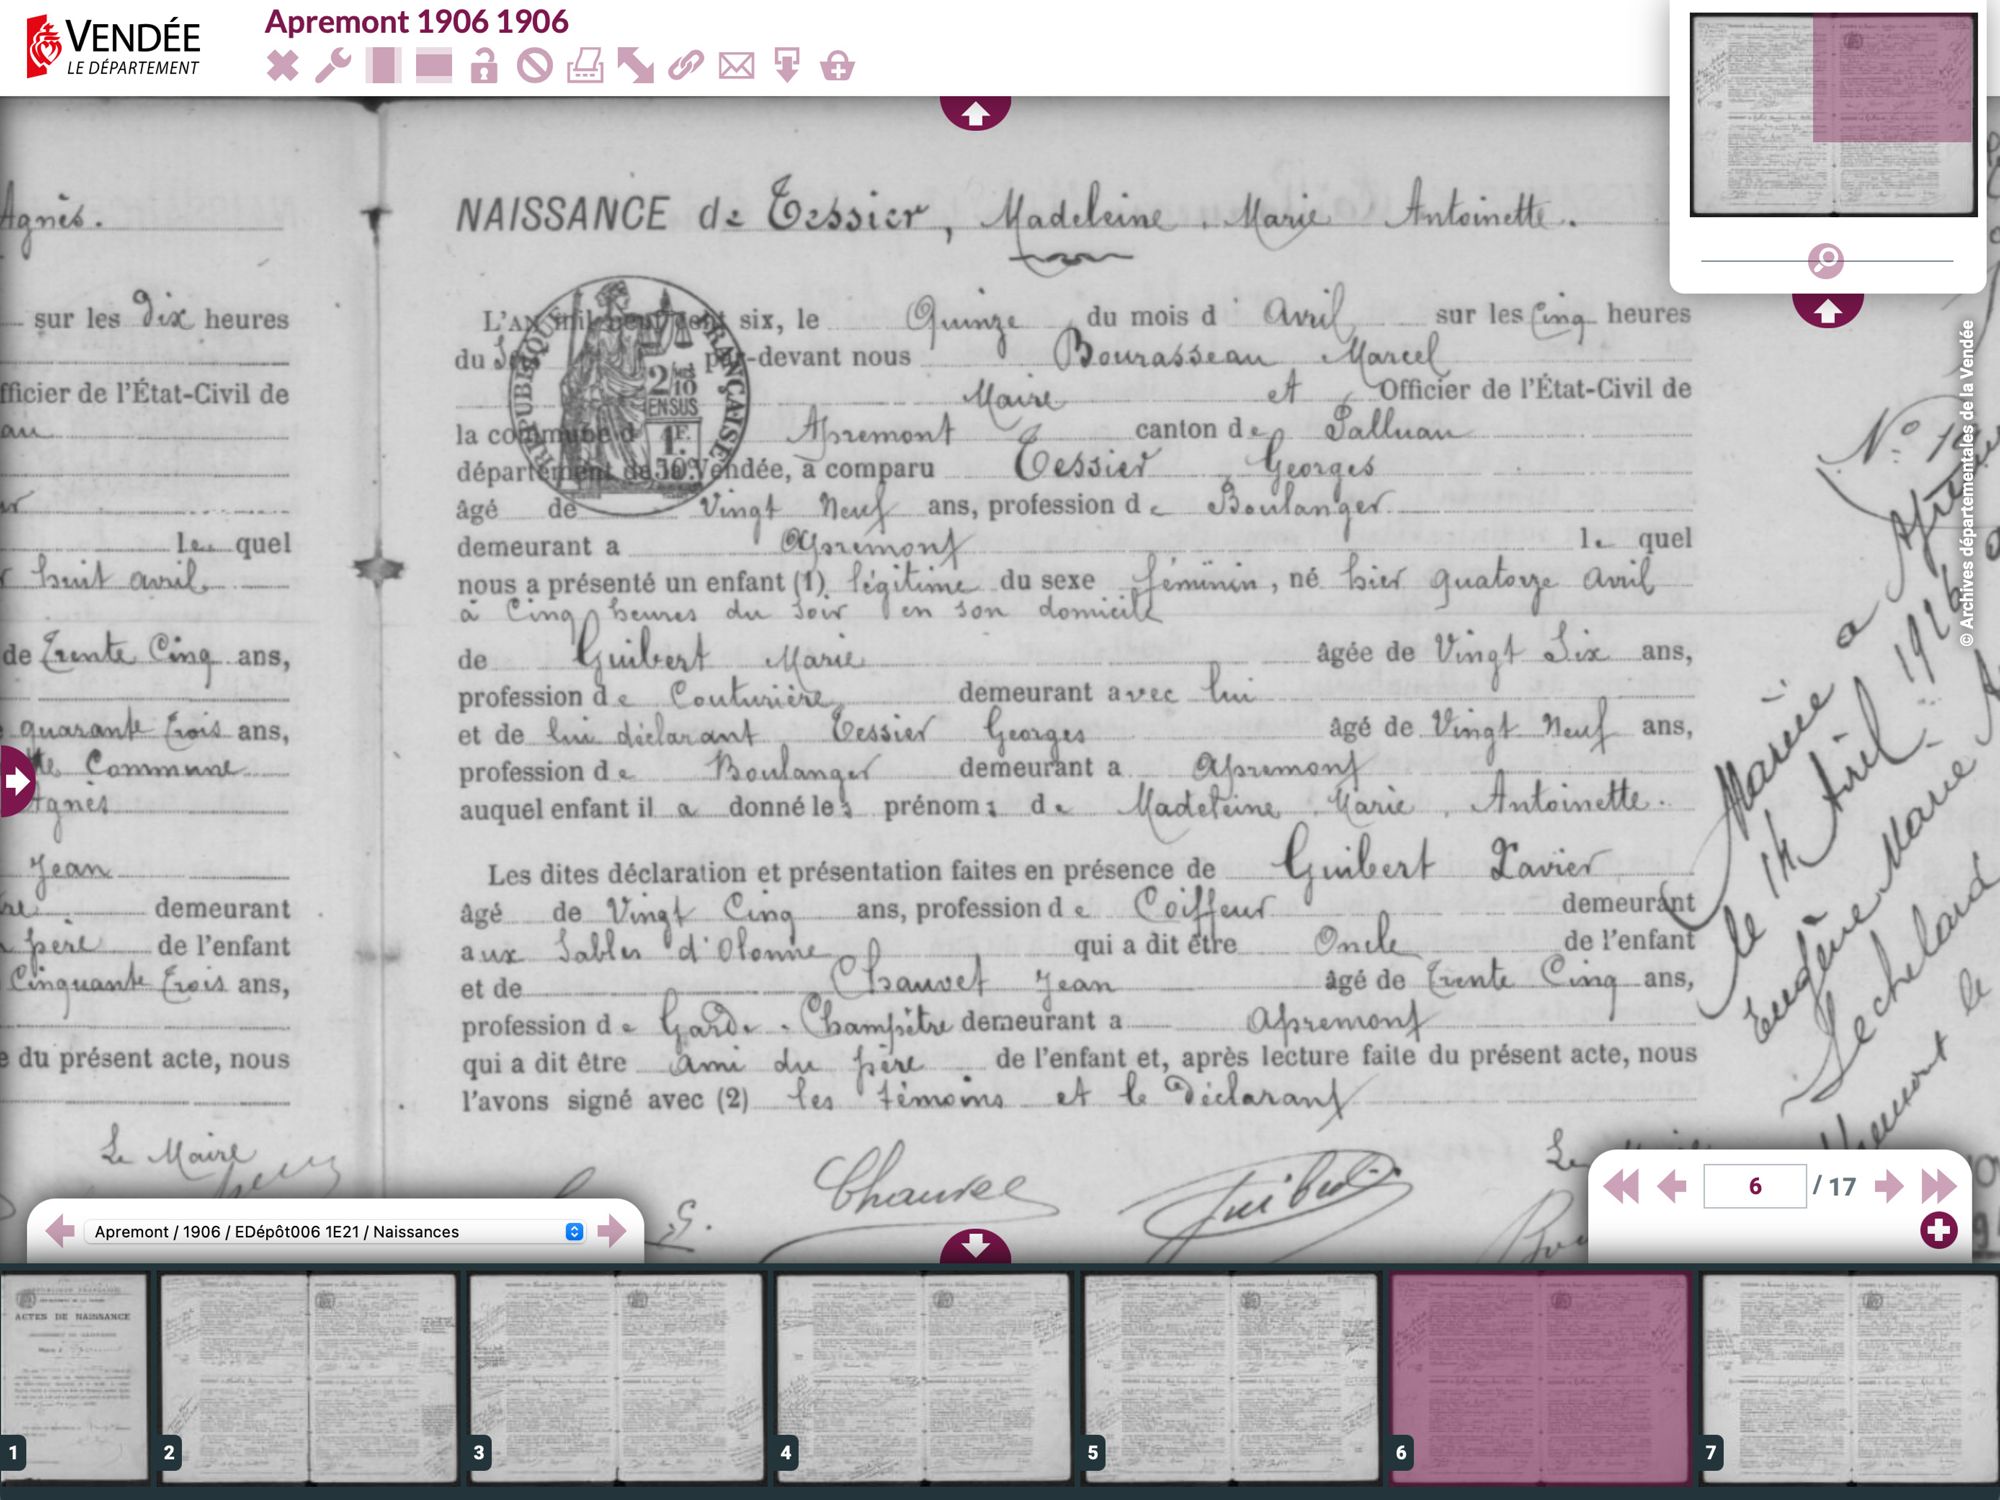 VENDÉE
LE DÉPARTEMENT
Apremont 1906 1906
Agnès.
sur les Dix heures
fficier de l'État-Civil de
au
le quel
huit avril
de Trente Cinq ans,
quarante Trois ans,
Commune
Agnès
Jean
demeurant
père de l'enfant
Cinquante Trois ans,
e du présent acte, nous
Le Maire
NAISSANCE de Tessier, Madeleine Marie Antoinette.
L'AN mil neuf cent six, le Quinze du mois d'Avril sur les Cinq heures
du par-devant nous Bourasseau Marcel
Maire et Officier de l'État-Civil de
la commune d Apremont canton de Palluau
département de la Vendée, a comparu Tessier Georges
âgé de Vingt Neuf ans, profession de Boulanger
demeurant a Apremont le quel
nous a présenté un enfant (1) légitime du sexe féminin, né hier quatorze avril
à Cinq heures du soir en son domicile
de Guibert Marie âgée de Vingt Six ans,
profession de Couturière demeurant avec lui
et de lui déclarant Tessier Georges âgé de Vingt Neuf ans,
profession de Boulanger demeurant a Apremont
auquel enfant il a donné les prénoms de Madeleine Marie Antoinette.
Les dites déclaration et présentation faites en présence de Guibert Xavier
âgé de Vingt Cinq ans, profession de Coiffeur demeurant
aux Sables d'Olonne qui a dit être Oncle de l'enfant
et de Chauvet Jean âgé de Trente Cinq ans,
profession de Garde-Champêtre demeurant a Apremont
qui a dit être ami du père de l'enfant et, après lecture faite du présent acte, nous
l'avons signé avec (2) les témoins et le Déclarant
Chauvet
Guibert
RÉPUBLIQUE FRANÇAISE
2/10
EN SUS
1F.
50c.
Mariée a
le 14 Avril 1926
Eugène Marie
© Archives départementales de la Vendée
Apremont / 1906 / EDépôt006 1E21 / Naissances
6 / 17
ACTES DE NAISSANCE
1
2
3
4
5
6
7